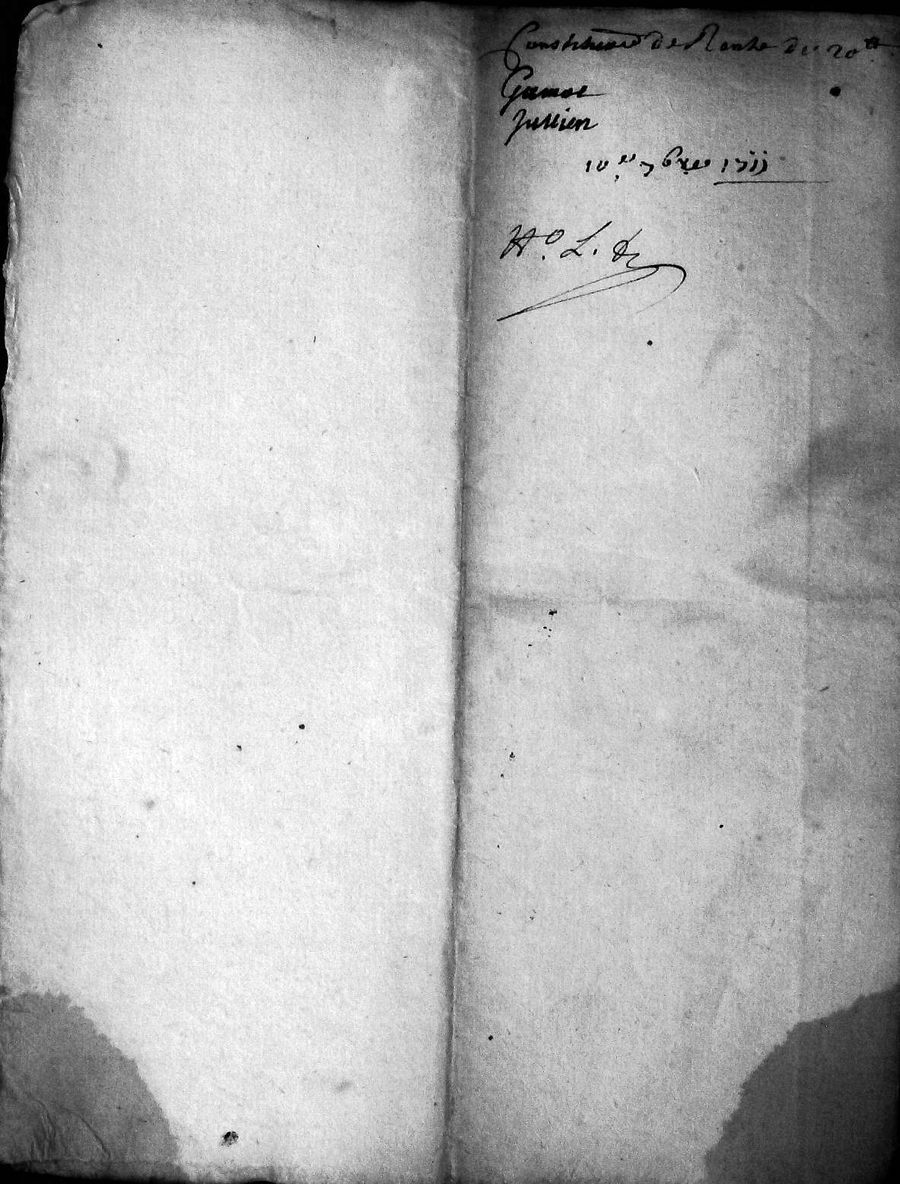 Constitution de Rente de 20tt
Gamot
Jullien
10.e 7bre 1711
No. L. &